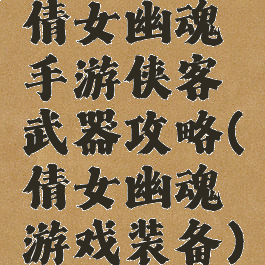 倩女幽魂
手游侠客
武器攻略(
倩女幽魂
游戏装备)